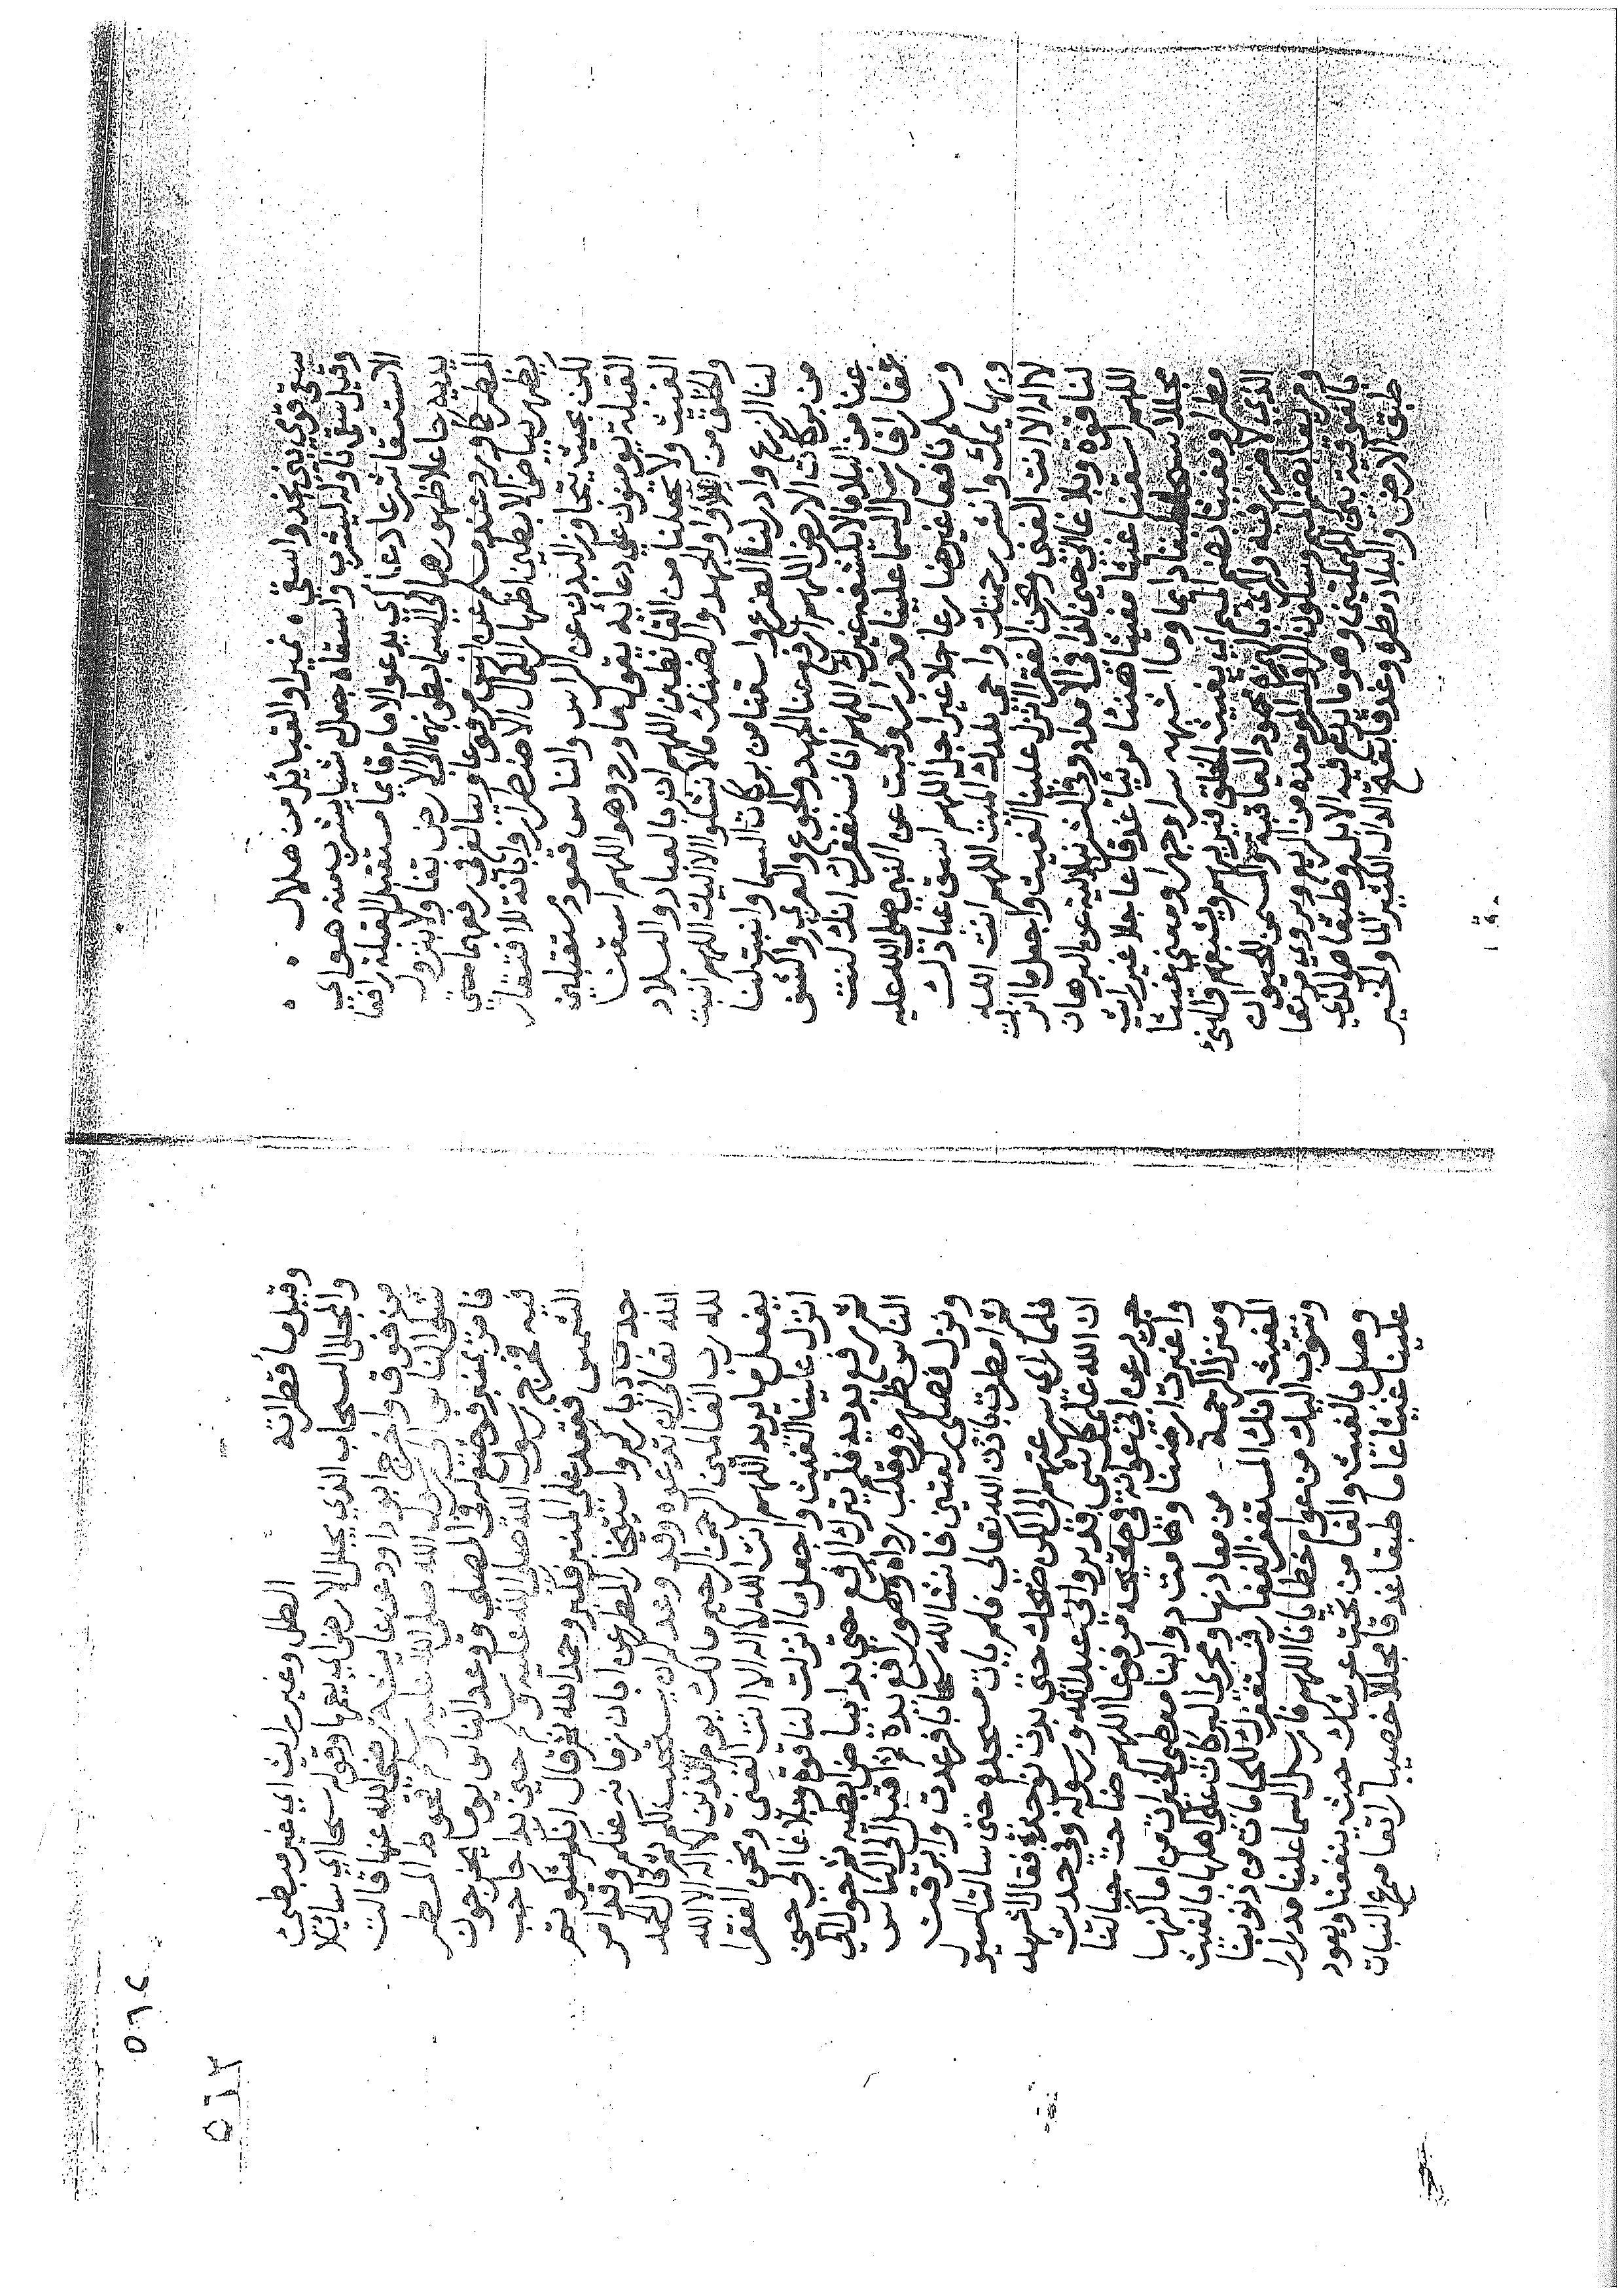 سقى قومي بني نجد واسقى ه نميرا والقبائل من هلال
وقيل سقى ناوله ليشرب واسقاه جعل شيا يشرب منه هو اي
الاستسقا شرعا دعا اي يدعو الامام قايما مستقبل القبلة رافعا
يديه جاعلا ظهورهما الى السما بطونهما الى الارض تفاولا بنزول
المطر كما ورد عند مسلم عن انس مرفوعا ويبالغ في رفعهما حتى
يظهر بياض الابطين اظهار الكمال الاضطرار وابانة للافتقار
لكن بحيث يتجاوز اليدان عن الراس والناس قعود مستقبلين
القبلة يومنون على دعائه يقول ما ورد وهو اللهم اسقنا
الغيث ولا تجعلنا من القانطين اللهم ان بالعباد والبلاد
والخلق من اللاوا والجهد والضنك ما لا نشكوا الا اليك اللهم انبت
لنا الزرع وادر لنا الضرع واسقنا من بركات السما وانبت لنا
من بركات الارض اللهم ارفع عنا الجهد والجوع والعري واكشف
عنا من البلا ما لا يكشفه غيرك اللهم انا نستغفرك انك كنت
غفارا فارسل السما علينا مدرارا وثبت عن النبي صلى الله عليه
وسلم نافعا غير ضار عاجلا غير اجل اللهم اسق عبادك
وبهايمك وانشر رحمتك واحي بلدك الميت اللهم انت الله
لا اله الا انت الغني ونحن الفقرا انزل علينا الغيث واجعل ما انزلت
لنا قوة وبلاغا الى حين كذا في الامداد وفي الشرنبلالية عن البرهان
اللهم اسقنا غيثا مغيثا هنيئا مريئا غدقا عاجلا غير رايث
مجللا سحا طبقا دايما وما اشبهه سرا وجهرا ومعنى غيثا
مطرا ومغيثا بضم الميم اي يغيث الخلق فيرويهم ويشبعهم والهنئ
الذي لا ضرر فيه والمري بالهمزة محمود العاقبة والمسمن للحيوان
ومريعا بضم الميم وسكون الراء وبالموحدة من الربيع ويروى مرتعا
بالفوقية بين المهملتين وهو ما ترتع فيه الابل وطبقا هو الذي
طبق الارض والبلاد مطره وغدقا بفتح الدال الكثير الماء والخير
وقيل ما قطراته الطل وغير رايث اي غير مبطئ
والمجلل السحاب الذي يجلل الارض اي يعمها وقوله سحا اي سائلا
من فوق واخرج ابو داود عن عايشة رضي الله عنها قالت
شكى الناس الى رسول الله صلى الله عليه وسلم قحوط المطر
فامر بمنبر فوضع له في المصلى ووعد الناس يوما يخرجون
فيه فخرج رسول الله صلى الله عليه وسلم حين بدا حاجب
الشمس فقعد على المنبر فكبر وحمد الله ثم قال انكم شكوتم
جدب دياركم واستيخار المطر عن ابان زمانه عنكم وقد امر
الله تعالى ان تدعوه ووعدكم ان يستجيب لكم ثم قال الحمد
لله رب العالمين الرحمن الرحيم مالك يوم الدين لا اله الا الله
يفعل ما يريد اللهم انت الله لا اله الا انت الغني ونحن الفقرا
انزل علينا الغيث واجعل ما انزلت لنا قوة وبلاغا الى حين
ثم رفع يديه فلم يترك الرفع حتى بدا بياض ابطيه ثم حول الى
الناس ظهره وقلب رداه وهو رافع يديه ثم اقبل الى الناس
ونزل فصلى ركعتين فانشا الله سحابا فرعدت وابرقت
ثم امطرت باذن الله تعالى فلم يات مسجده حتى سالت السيول
فلما راى سرعتهم الى الكن ضحك حتى بدت نواجذه فقال اشهد
ان الله على كل شي قدير واني عبد الله ورسوله وفي حديث
عن ابي عوانة في صحيحه مرفوعا اللهم ضاحت جبالنا
واغبرت ارضنا وهامت دوابنا معطي الخيرات من اماكنها
ومنزل الرحمة من معادنها ومجري البركات على اهلها بالغيث
المغيث انك المستغفر الغفار فنستغفرك للجامات من ذنوبنا
ونتوب اليك من عوام خطايانا اللهم فارسل السما علينا مدرارا
وصل بالغيث والغا من تحت عرشك حيث ينفعنا ويعود
علينا غيثا عاما طبقا غدقا مجللا خصيبا راتعا ممرع النبات